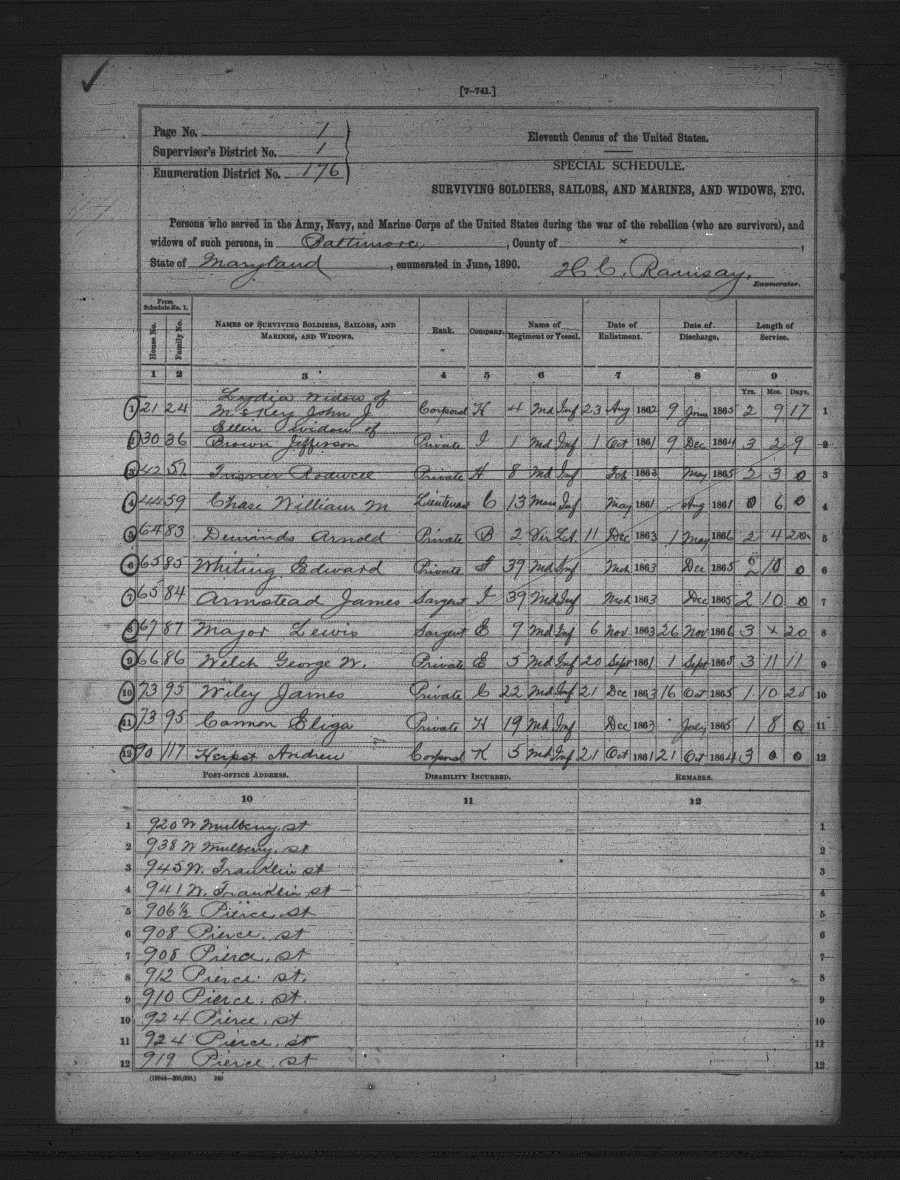 [7–741.]
Page No. 1
Supervisor's District No. 1
Enumeration District No. 176
Eleventh Census of the United States.
SPECIAL SCHEDULE.
SURVIVING SOLDIERS, SAILORS, AND MARINES, AND WIDOWS, ETC.
Persons who served in the Army, Navy, and Marine Corps of the United States during the war of the rebellion (who are survivors), and
widows of such persons, in Baltimore, County of x,
State of Maryland, enumerated in June, 1890. H C. Ramsay.
Enumerator.
From Schedule No. 1.
House No. Family No. NAMES OF SURVIVING SOLDIERS, SAILORS, AND MARINES, AND WIDOWS. Rank. Company. Name of Regiment or Vessel. Date of Enlistment. Date of Discharge. Length of Service.
1 2 3 4 5 6 7 8 9
Yrs. Mos. Days.
Lydia widow of
1 21 24 McKey John J Corporal H 4 Md Inf 23 Aug 1862 9 June 1865 2 9 17 1
Ellen widow of
2 30 36 Brown Jefferson Private I 1 Md Inf 1 Oct 1861 9 Dec 1864 3 2 9 2
3 42 57 Private H 8 Md Inf 1863 May 1865 2 3 0 3
4 44 59 Chase William M Lieutenant C 13 Inf May 1861 Aug 1861 0 6 0 4
5 64 83 Deminds Arnold Private B 2 11 Dec 1863 1 May 1866 2 4 20 5
6 65 85 Whiting Edward Private 39 Md Inf Mch 1863 Dec 1865 2 10 0 6
7 65 84 Armstead James Sargent I 39 Md Inf Mch 1863 Dec 1865 2 10 0 7
8 67 87 Major Lewis Sargent E 9 Md Inf 6 Nov 1863 26 Nov 1866 3 x 20 8
9 66 86 Welch George W. Private E 5 Md Inf 20 Sept 1861 1 Sept 1865 3 11 11 9
10 73 95 Wiley James Private C 22 Md Inf 21 Dec 1863 16 Oct 1865 1 10 10
11 73 95 Cannon Eliga Private H 19 Md Inf Dec 1863 July 1865 1 8 0 11
12 70 117 Herpst Andrew Corporal K 5 Md Inf 21 Oct 1861 21 Oct 1864 3 0 0 12
POST-OFFICE ADDRESS. DISABILITY INCURRED. REMARKS.
10 11 12
1 920 W Mulberry st 1
2 938 W Mulberry st 2
3 945 W. Franklin st 3
4 941 W. Franklin st 4
5 906½ Pierce st 5
6 908 Pierce st 6
7 908 Pierce st 7
8 912 Pierce st. 8
9 910 Pierce st. 9
10 924 Pierce st 10
11 924 Pierce st 11
12 919 Pierce st 12